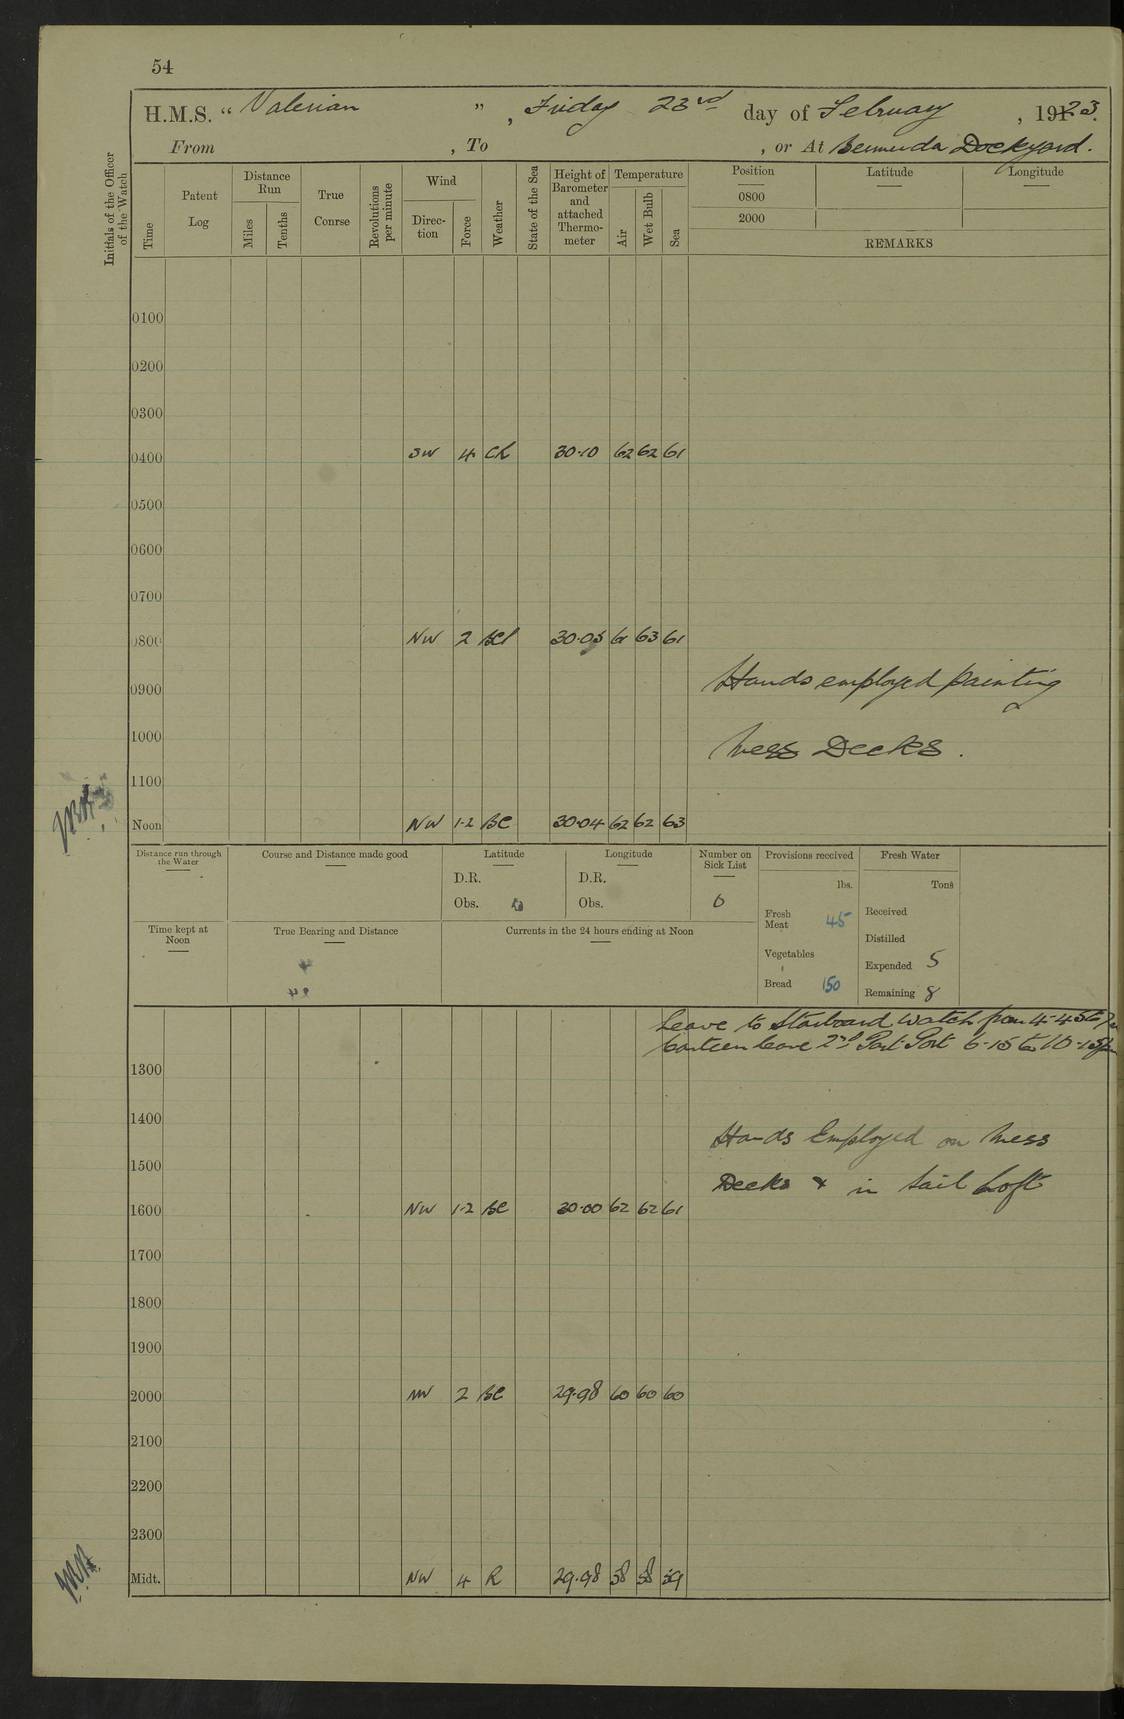 54
H.M.S. “ Valerian ” , Friday 23rd day of February , 1923.
From , To , or At Bermuda Dockyard.
Initials of the Officer of the Watch
Time
Patent Log
Distance Run
Miles
Tenths
True Course
Revolutions per minute
Wind
Direc-tion
Force
Weather
State of the Sea
Height of Barometer and attached Thermo-meter
Temperature
Air
Wet Bulb
Sea
Position Latitude Longitude
0800
2000
REMARKS
0100
0200
0300
0400 SW 4 30·10 62 62 61
0500
0600
0700
0800 NW 2 30·05 61 63 61
0900 Hands employed painting
1000 Mess Decks.
1100
Noon NW 1-2 BC 30·04 62 62 63
Distance run through the Water
Course and Distance made good
Latitude
D.R.
Obs.
Longitude
D.R.
Obs.
Number on Sick List
0
Provisions received
lbs.
Fresh Meat 45
Vegetables
Bread 150
Fresh Water
Tons
Received
Distilled
Expended 5
Remaining 8
Time kept at Noon
True Bearing and Distance
Currents in the 24 hours ending at Noon
Leave to Starboard Watch from 4-45 to
Canteen leave 2nd Part Port 6-15 to 10-15pm
1300
1400 Hands Employed on Mess
1500 Decks & in Sail Loft
1600 NW 1-2 BC 30·00 62 62 61
1700
1800
1900
2000 NW 2 BC 29·98 60 60 60
2100
2200
2300
Midt. NW 4 R 29·98 58 58 59